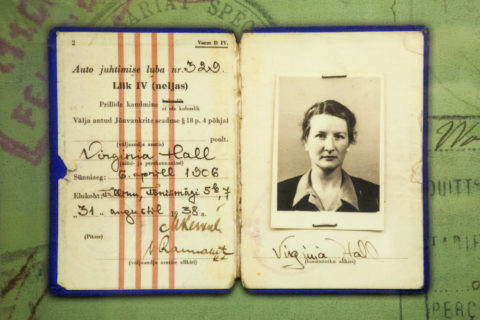 2
Vorm B IV.
Auto juhtimise luba nr. 329.
Liik IV (neljas)
Prillide kandmine kohuslik
ei ole kohuslik
Välja antud Jõuvankrite seaduse § 18 p. 4 põhjal
poolt.
(väljaandja asutis)
Virginia Hall
(nimi- ja perekonnanimi)
Sünniaeg: 6. aprill 1906
Elukoht: Tõnismägi 5
"31" augustil 1938 a.
(Pitsat)
(väljaandja asutise allkiri)
Virginia Hall
(luba
allkiri)
ARIAT SPEC